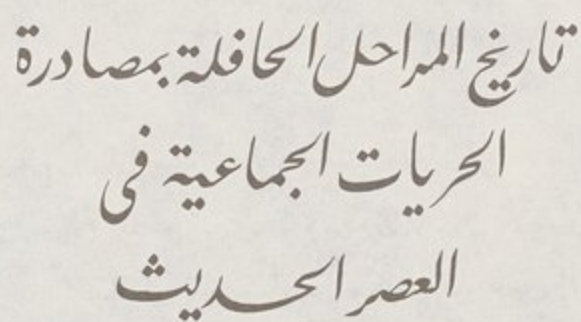 تاريخ المراحل الحافلة بمصادرة
الحريات الجماعية فى
العصر الحديث